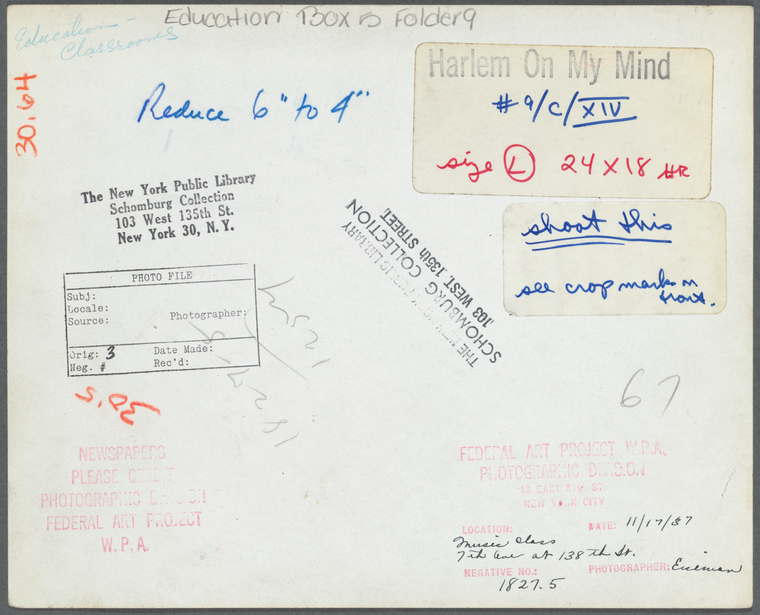 Education Box 5 Folder 9
Education -
Classrooms
30.64
Reduce 6" to 4"
Harlem On My Mind
#9/C/XIV
size L 24 X 18 HR
shoot this
see crop marks on
front.
The New York Public Library
Schomburg Collection
103 West 135th St.
New York 30, N. Y.
THE NEW YORK PUBLIC LIBRARY
SCHOMBURG COLLECTION
103 WEST 135th STREET,
PHOTO FILE
Subj:
Locale:
Source:
Photographer:
Orig: 3
Date Made:
Neg. #
Rec'd:
67
NEWSPAPERS
PLEASE CREDIT
PHOTOGRAPHIC DIVISION
FEDERAL ART PROJECT
W. P. A.
FEDERAL ART PROJECT W.P.A.
PHOTOGRAPHIC DIVISION
EAST ST.
NEW YORK CITY
LOCATION:
DATE: 11/17/37
Music Class
7th Ave at 138th St.
NEGATIVE NO.:
PHOTOGRAPHER: Eiseman
1827.5